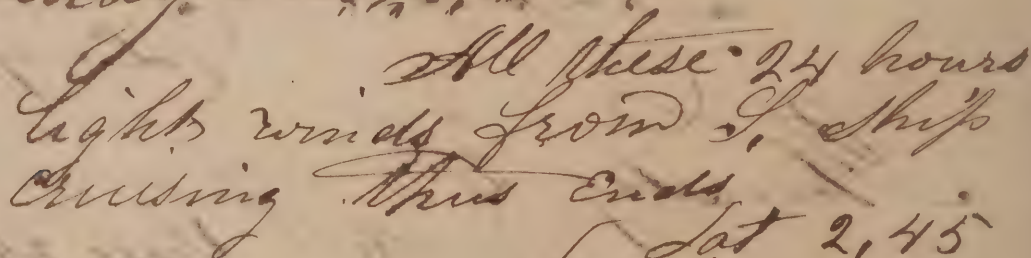 All these 24 hours
light winds from S, ship
cruising thus Ends
Lat 2,45